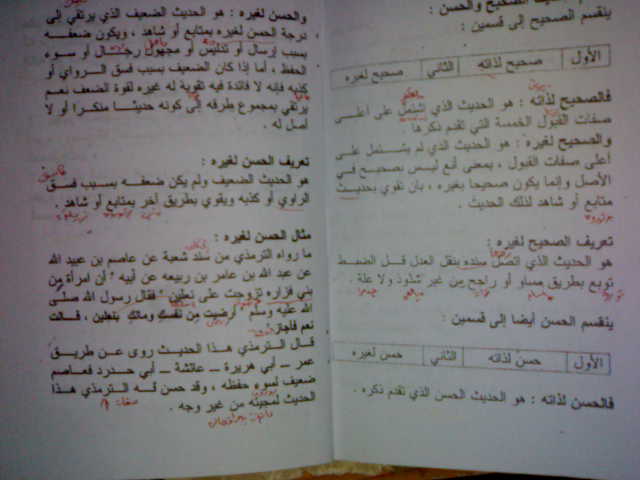 الحديث الصحيح والحسن :
ينقسم الصحيح إلى قسمين :
الأول صحيح لذاته الثاني صحيح لغيره
فالصحيح لذاته : هو الحديث الذي اشتمل على أعلى
صفات القبول الخمسة التي تقدم ذكرها
والصحيح لغيره : هو الحديث الذي لم يشتمل على
أعلى صفات القبول ، بمعنى أنع ليس بصحيح في
الأصل وإنما يكون صحيحا بغيره ، بان تقوي بحديث
متابع أو شاهد لذلك الحديث .
تعريف الصحيح لغيره :
هو الحديث الذي اتصل سنده بنقل العدل قل الضبط
توبع بطريق مساو أو راجح من غير شذوذ ولا علة .
ينقسم الحسن أيضا إلى قسمين :
الأول حسن لذاته الثاني حسن لغيره
فالحسن لذاته : هو الحديث الحسن الذي تقدم ذكره .
والحسن لغيره : هو الحديث الضعيف الذي يرتقي إلى
درجة الحسن لغيره بمتابع أو شاهد ، ويكون ضعفه
بسبب إرسال أو تدليس أو مجهول رجال أو سوء
الحفظ ، أما إذا كان الضعيف بسبب فسق الرواي أو
كذبه فإنه لا فائدة فيه تقوية له غيره لقوة الضعف نعم
يرتقي بمجموع طرقه إلى كونه حديثا منكرا أو لا
أصل له .
تعريف الحسن لغيره :
هو الحديث الضعيف ولم يكن ضعفه بسبب فسق
الراوي أو كذبه ويقوي بطريق آخر بمتابع أو شاهد .
مثال الحسن لغيره :
ما رواه الترمذي من سند شعبة عن عاصم بن عبيد الله
عن عبد الله بن عامر بن ربيعه عن أبيه " أن امرأة من
بني فزاره تزوجت على نعلين ، فقال رسول الله صلى
الله عليه وسلم " أرضيت من نفسك ومالك بنعلين ، قالت
نعم فأجاز
قال الترمذي هذا الحديث روى عن طريق
عمر – أبي هريرة – عائشة – أبي حدرد فعاصم
ضعيف لسوء حفظه ، وقد حسن له الترمذي هذا
الحديث لمجيئه من غير وجه .